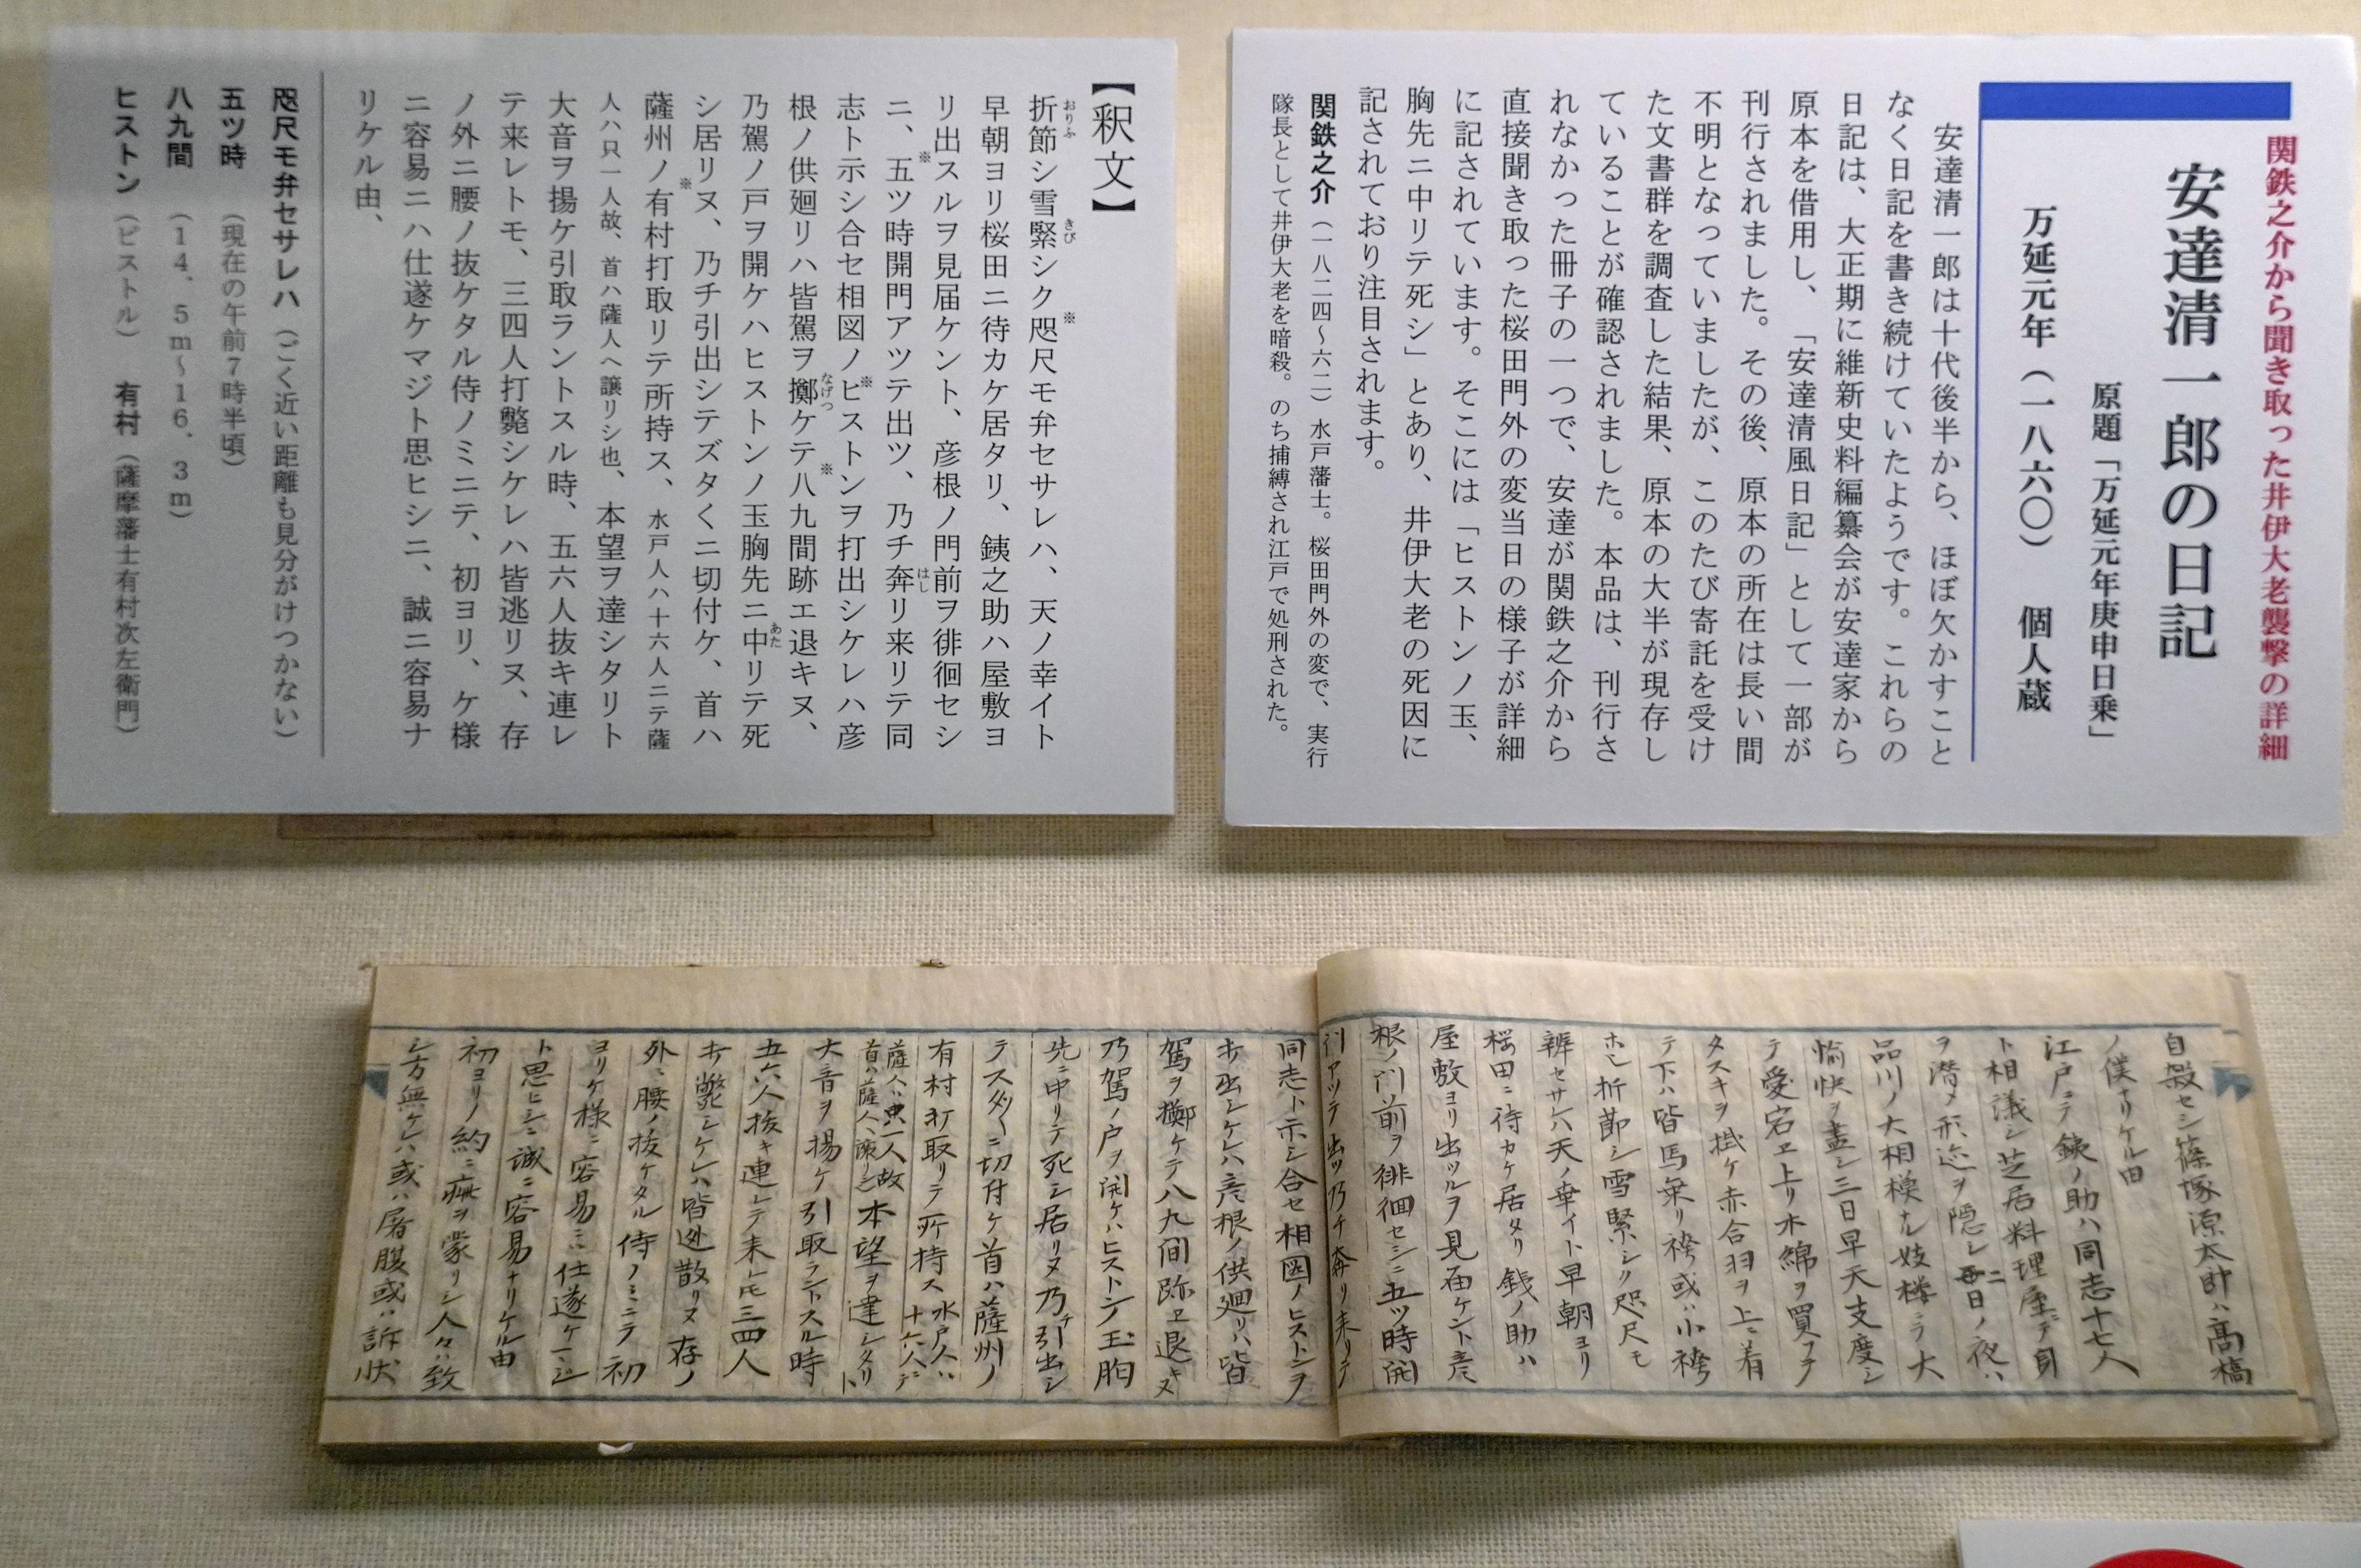 関鉄之介から聞き取った井伊大老襲撃の詳細
安達清一郎の日記
原題「万延元年庚申日乗」
万延元年（一八六〇）　個人蔵
安達清一郎は十代後半から、ほぼ欠かすこと
なく日記を書き続けていたようです。これらの
日記は、大正期に維新史料編纂会が安達家から
原本を借用し、「安達清風日記」として一部が
刊行されました。その後、原本の所在は長い間
不明となっていましたが、このたび寄託を受け
た文書群を調査した結果、原本の大半が現存し
ていることが確認されました。本品は、刊行さ
れなかった冊子の一つで、安達が関鉄之介から
直接聞き取った桜田門外の変当日の様子が詳細
に記されています。そこには「ヒストンノ玉、
胸先ニ中リテ死シ」とあり、井伊大老の死因に
記されており注目されます。
関鉄之介（一八二四～六二）水戸藩士。桜田門外の変で、実行
隊長として井伊大老を暗殺。のち捕縛され江戸で処刑された。
【釈文】
折節シ雪緊シク※咫尺モ弁セサレハ、天ノ幸イト
おりふ　きび
早朝ヨリ桜田ニ待カケ居タリ、銕之助ハ屋敷ヨ
リ出スルヲ見届ケント、彦根ノ門前ヲ徘徊セシ
ニ、※五ツ時開門アツテ出ツ、乃チ奔リ来リテ同
はし
志ト示シ合セ相図ノ※ピストンヲ打出シケレハ彦
根ノ供廻リハ皆駕ヲ擲ケテ※八九間跡エ退キヌ、
なげつ
乃駕ノ戸ヲ開ケハヒストンノ玉胸先ニ中リテ死
あた
シ居リヌ、乃チ引出シテズタくニ切付ケ、首ハ
薩州ノ※有村打取リテ所持ス、水戸人ハ十六人ニテ薩
人ハ只一人故、首ハ薩人ヘ譲リシ也、本望ヲ達シタリト
大音ヲ揚ケ引取ラントスル時、五六人抜キ連レ
テ来レトモ、三四人打斃シケレハ皆逃リヌ、存
ノ外ニ腰ノ抜ケタル侍ノミニテ、初ヨリ、ケ様
ニ容易ニハ仕遂ケマジト思ヒシニ、誠ニ容易ナ
リケル由、
咫尺モ弁セサレハ（ごく近い距離も見分がけつかない）
五ツ時　（現在の午前7時半頃）
八九間　（14．5m～16．3m）
ヒストン（ピストル）　有村（薩摩藩士有村次左衛門）
自殺セシ篠塚源太郎ハ高橋
ノ僕ナリケル由
江戸ニテ銕ノ助ハ同志十七人
ト相議シ芝居料理屋テ身
ヲ潜メ形迹ヲ隠シ二日ノ夜ハ
品川ノ大相模ナル妓楼ニテ大
愉快ヲ盡シ三日早天支度シ
テ愛宕エ上リ木綿ヲ買フテ
タスキヲ掛ケ赤合羽ヲ上ニ着
テ下ハ皆馬乗リ袴或ハ小袴
折節シ雪緊シク咫尺モ
辨セサレハ天ノ幸イト早朝ヨリ
桜田ニ待カケ居タリ銕ノ助ハ
屋敷ヨリ出ツルヲ見届ケント彦
根ノ門前ヲ徘徊セシニ五ツ時開
門アツテ出ツ乃チ奔リ来リテ
同志ト示シ合セ相図ノヒストンヲ
打出シケレハ彦根ノ供廻リハ皆
駕ヲ擲ケテ八九間跡エ退キヌ
乃駕ノ戸ヲ開ケハヒストンノ玉胸
先ニ中リテ死シ居リヌ乃チ引出シ
テスタ〱ニ切付ケ首ハ薩州ノ
有村打取リテ所持ス水戸人ハ十六人ニテ
薩人ハ只一人故首ハ薩人ヘ譲リシ也本望ヲ達シタリト
大音ヲ揚ケ引取ラントスル時
五六人抜キ連レテ来レトモ三四人
打斃シケレハ皆逃散リヌ存ノ
外ニ腰ノ抜ケタル侍ノミニテ初
ヨリケ様ニ容易ニハ仕遂ケマジ
ト思ヒシニ誠ニ容易ナリケル由
初ヨリノ約ニ疵ヲ蒙リシ人々ハ致
シ方無ケレハ或ハ屠腹或ハ訴状